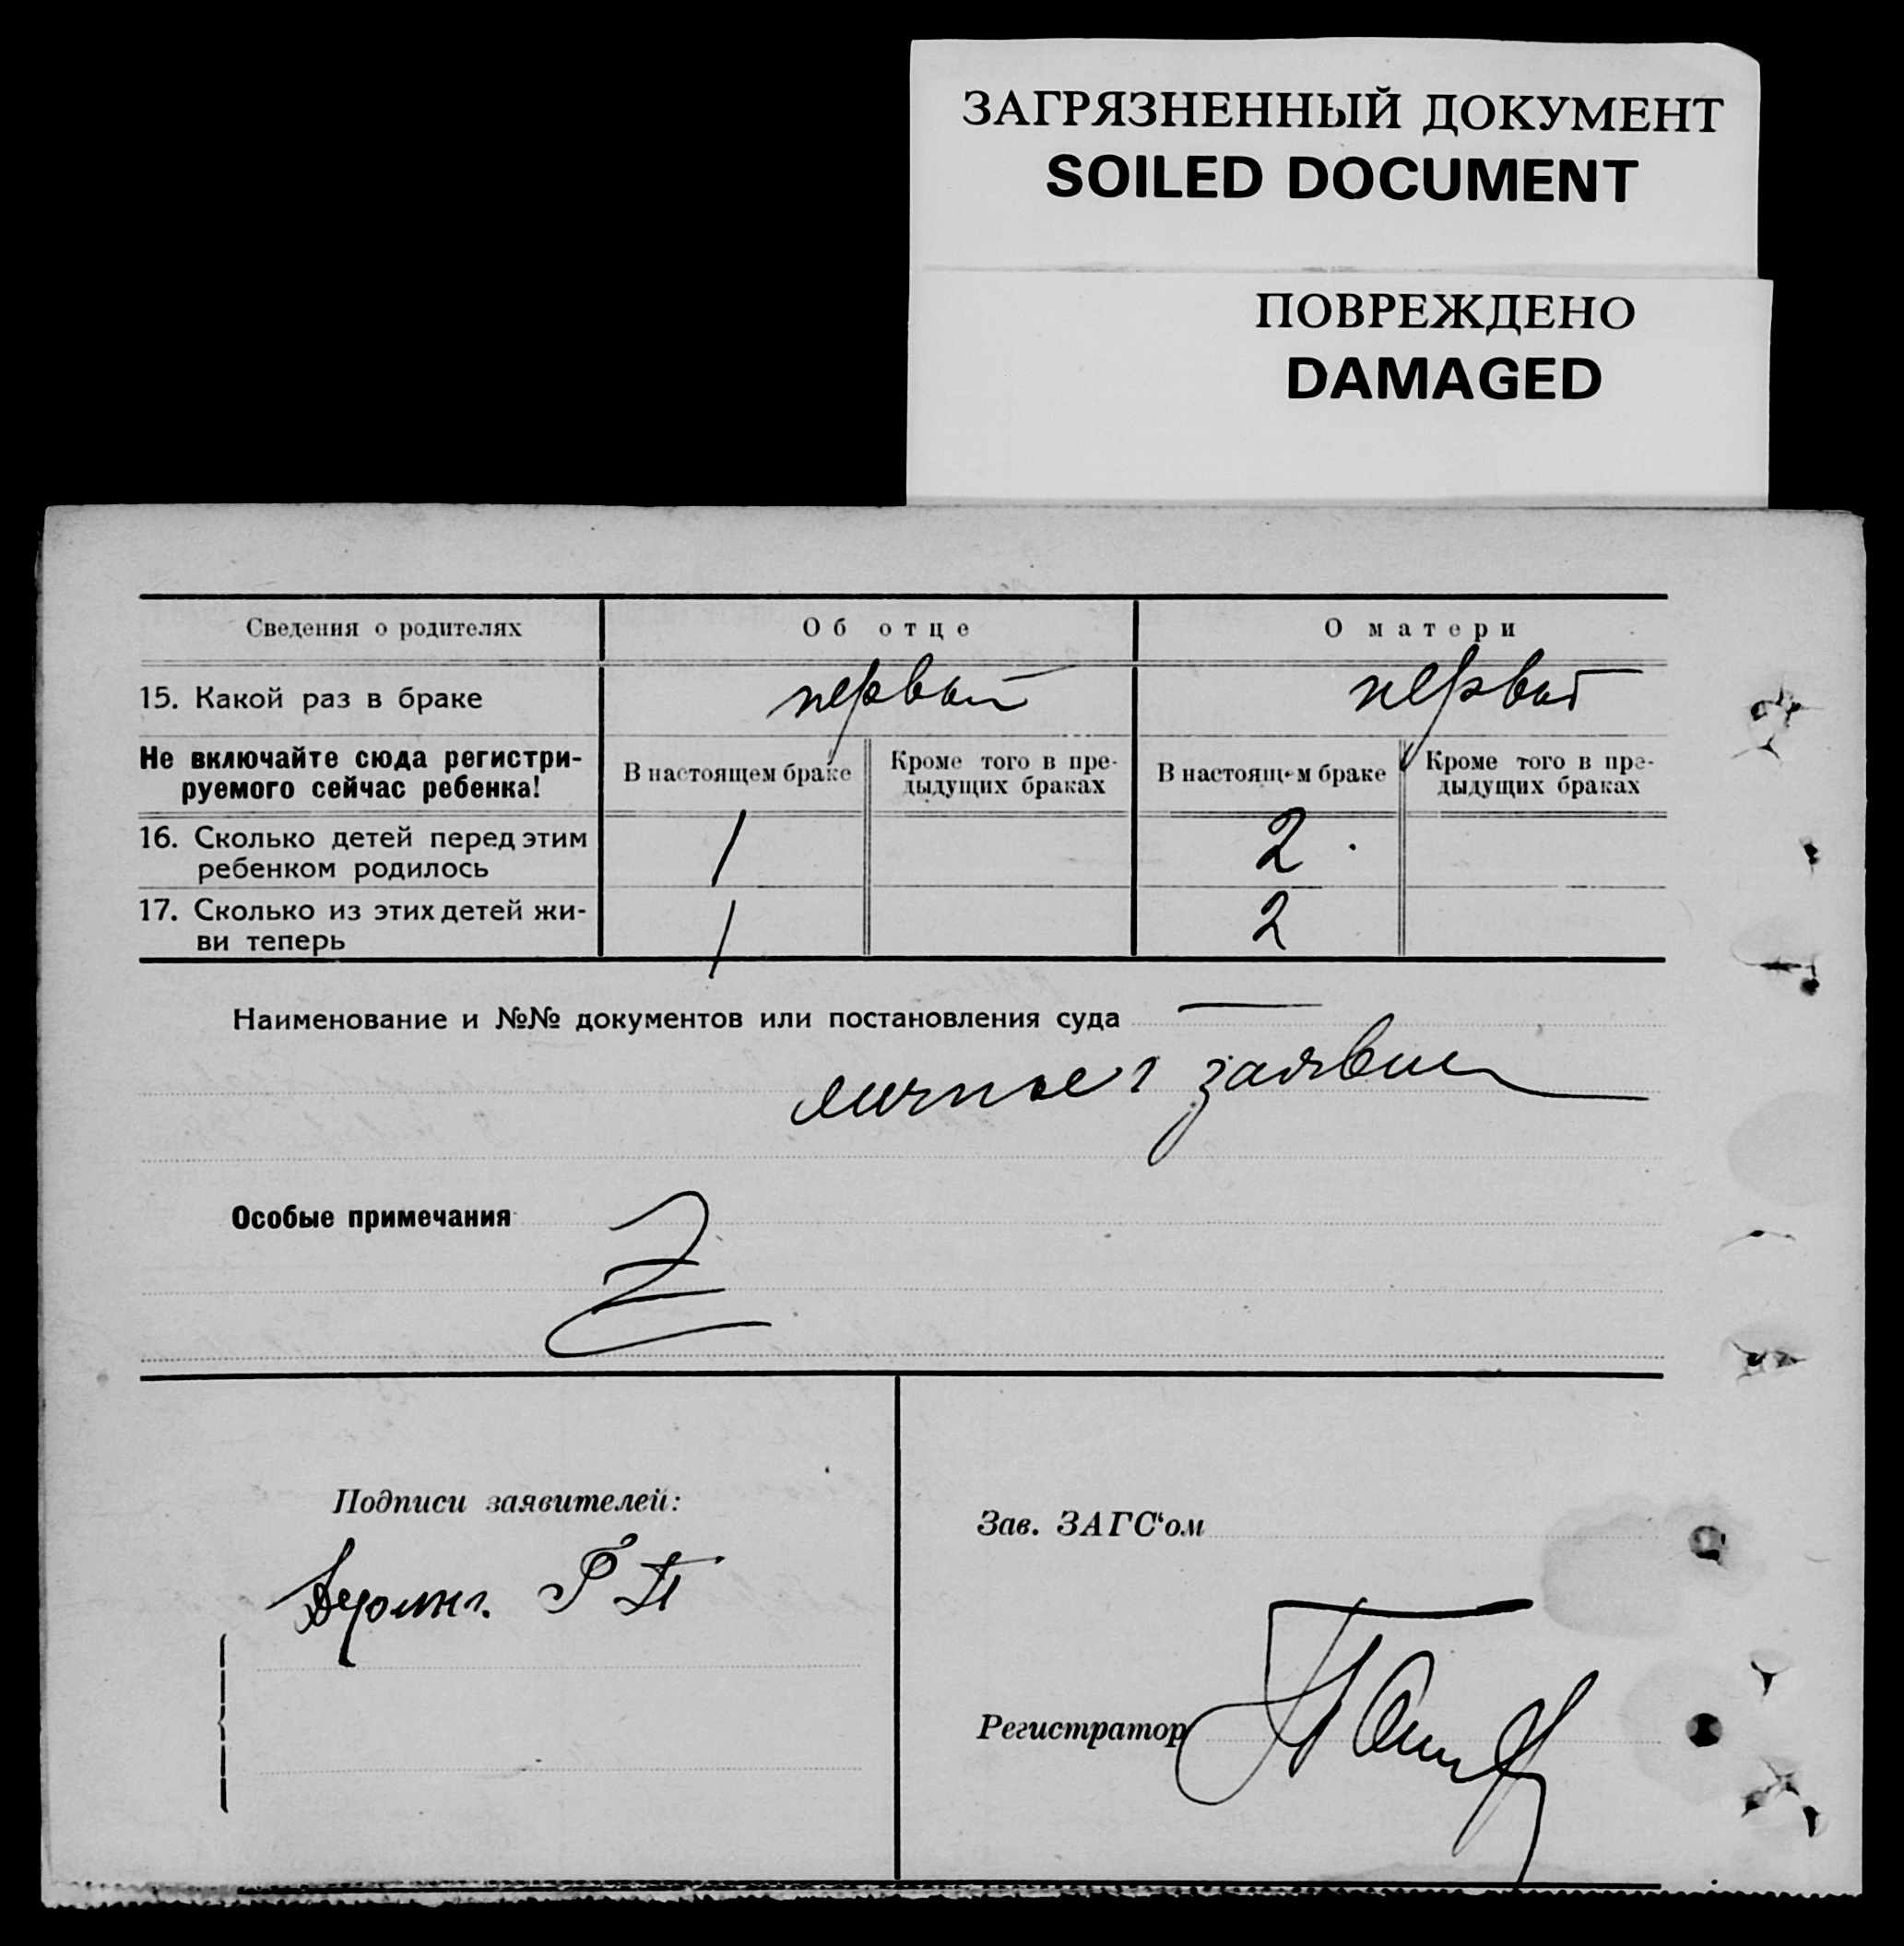 ЗАГРЯЗНЕННЫЙ ДОКУМЕНТ
SOILED DOCUMENT
ПОВРЕЖДЕНО
DAMAGED
Сведения о родителях Об отце О матери
15. Какой раз в браке первый первый
Не включайте сюда регистри-
руемого сейчас ребенка!
В настоящем браке
Кроме того в пре-
дыдущих браках
В настоящем браке
Кроме того в пре-
дыдущих браках
16. Сколько детей перед этим
ребенком родилось
1 2
17. Сколько из этих детей жи-
ви теперь
1 2
Наименование и №№ документов или постановления суда
Особые примечания
Подписи заявителей:
Зав. ЗАГС‘ом
Регистратор